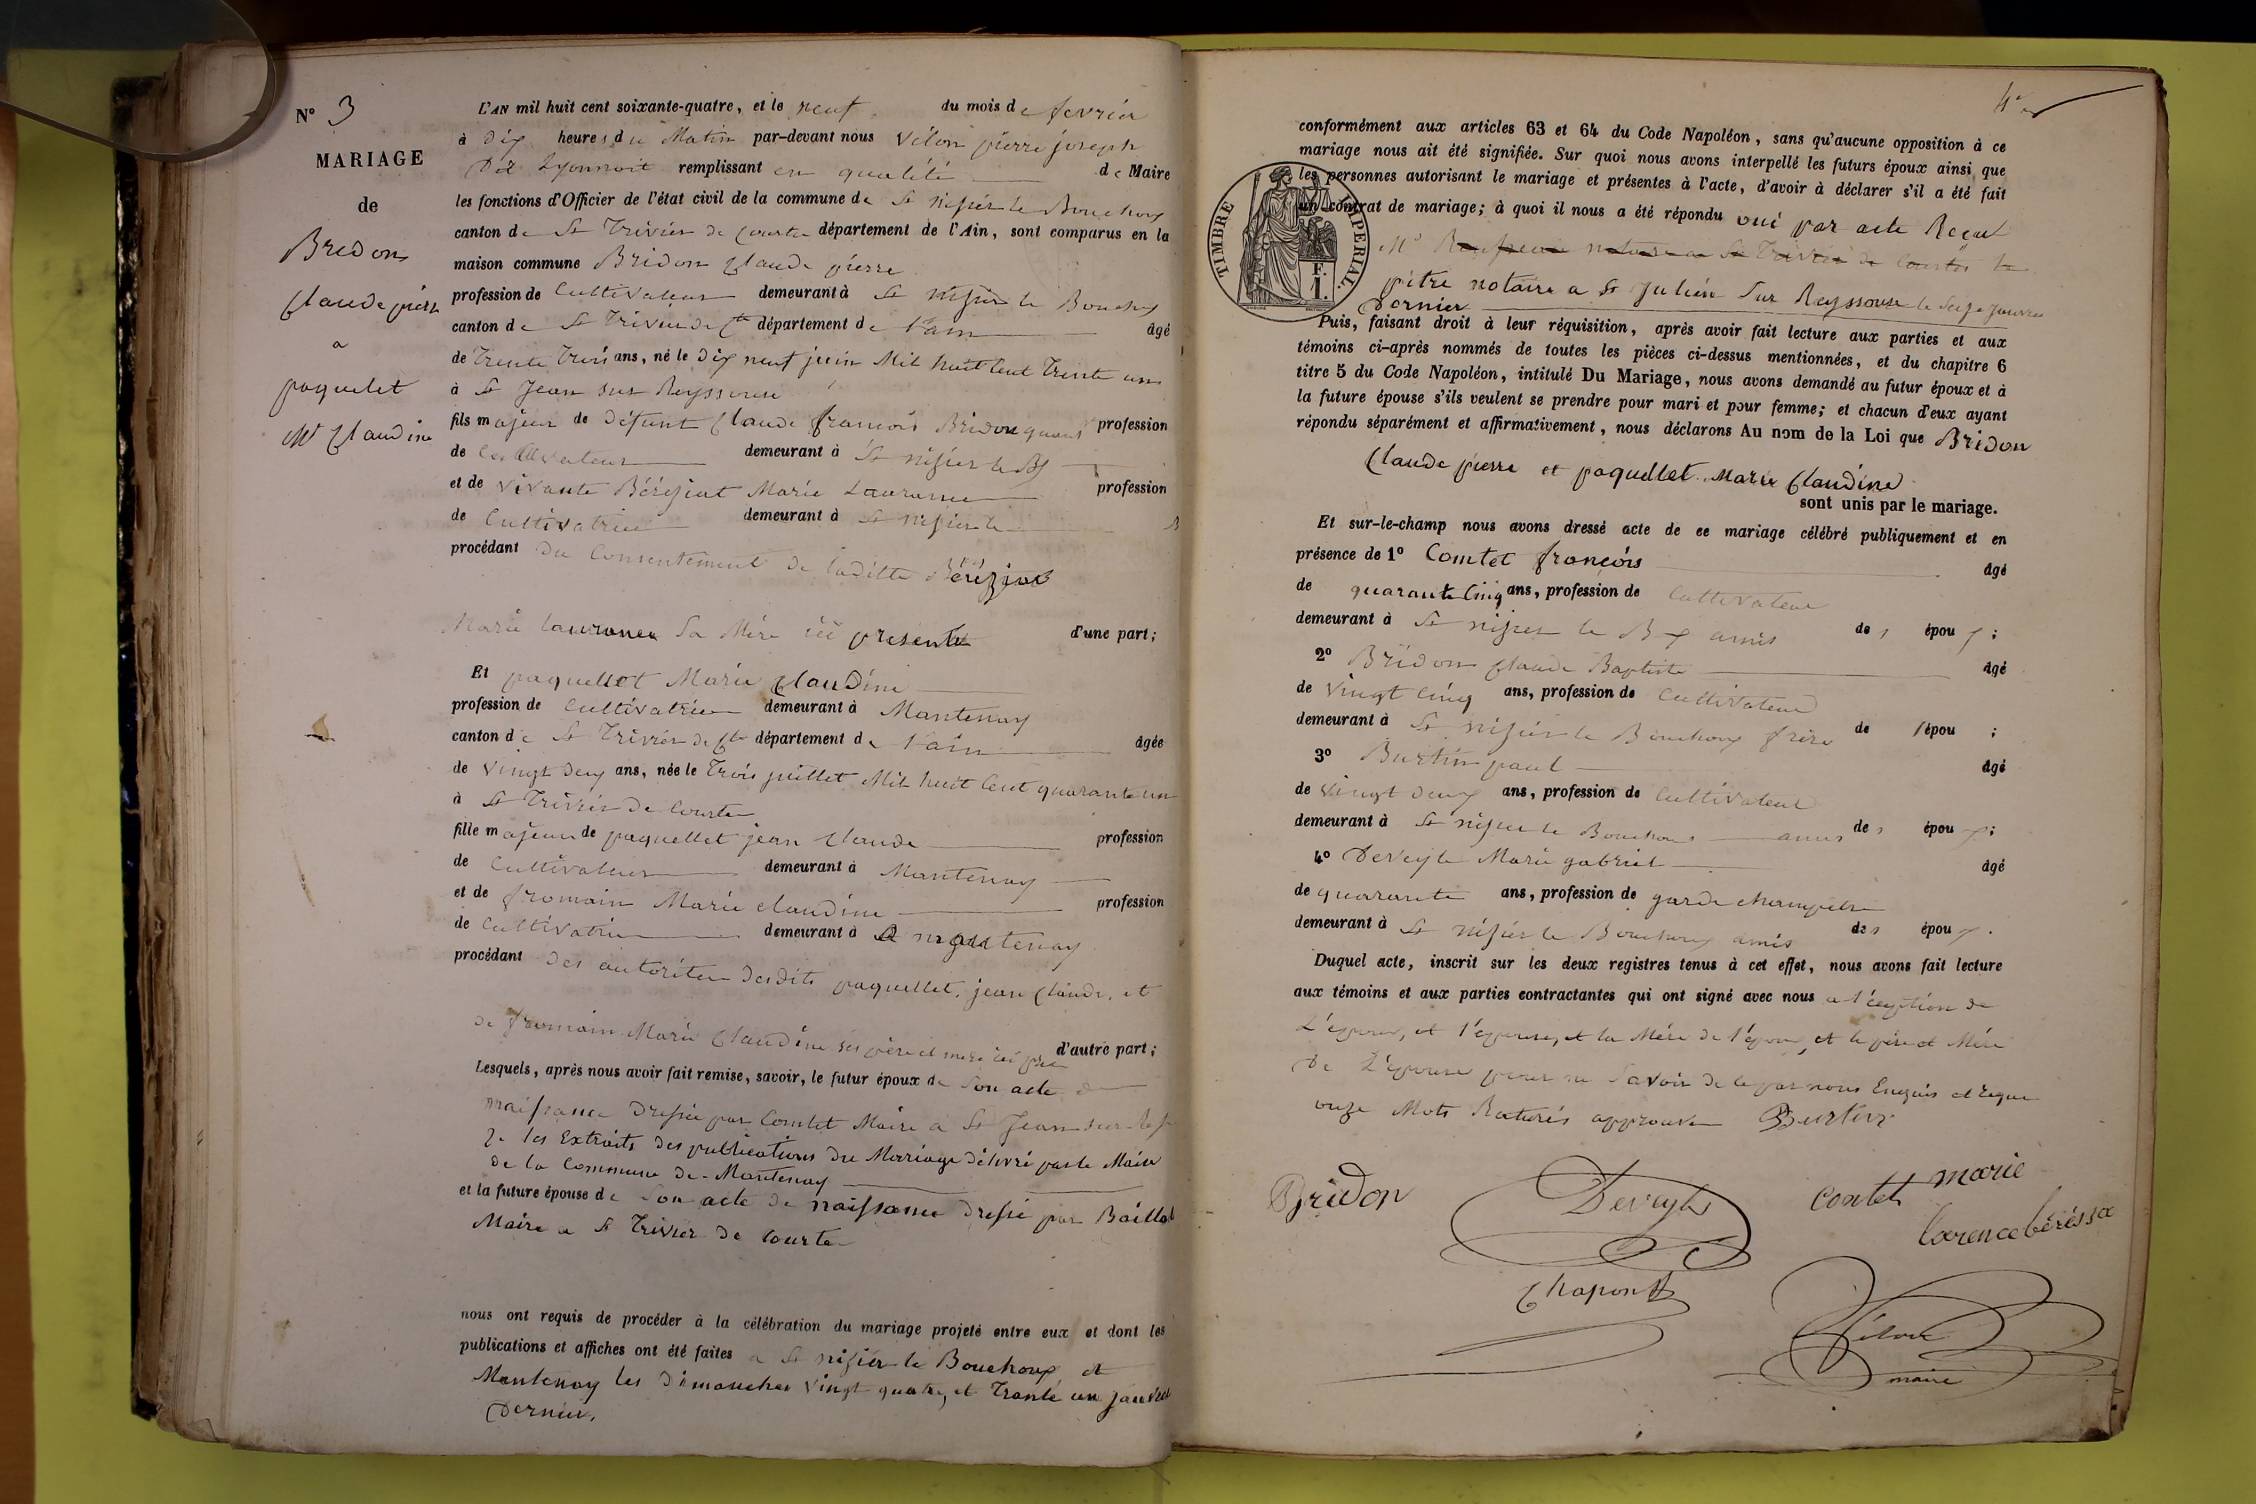 N° 3
MARIAGE
de
Bridon
Claude pierre
a
paquelet
Mie Claudine
L'AN mil huit cent soixante-quatre, et le neuf du mois de fevrier
à dix heures du Matin par-devant nous Vélon pierre joseph
dit Lyonnoit remplissant en qualité de Maire
les fonctions d'Officier de l'état civil de la commune de St nisier le Bouchoux
canton de St Trivier de Courte département de l'Ain, sont comparus en la
maison commune Bridon Claude pierre
profession de Cultivateur demeurant à St nisier le Bouchoux
canton de St Trivier de Cte département de l'ain âgé
de Trente Trois ans, né le Dix neuf juin Mil huit Cent Trente un
à St Jean sur Reyssouse
fils majeur de défunt Claude françois Bridon quand profession
de Cultivateur demeurant à St nisier le Bx
et de vivante Béréziat Marie Laurance profession
de Cultivatrice demeurant à St nisier le B
procédant du Consentement de laditte Béréziat
Marie laurance Sa Mère ici presente d'une part;
Et paquellet Marie Claudine
profession de Cultivatrice demeurant à Mantenay
canton de St Trivier de Cte département de l'ain âgée
de Vingt deux ans, née le Trois juillet Mil huit Cent quarante un
à St Trivier de Courte
fille majeure de paquellet jean Claude profession
de Cultivateur demeurant à Mantenay
et de fromain Marie claudine profession
de Cultivatrice demeurant à a mantenay
procédant des autorités desdits paquellet, jean Claude, et
de fromain Marie Claudine ses père et mere ici pre d'autre part;
Lesquels, après nous avoir fait remise, savoir, le futur époux de Son acte de
naissance Dressée par Comtet Maire a St Jean sur
2° les Extraits des publications du Mariage délivré par le Maire
de la Commune de Mantenay
et la future épouse de Son acte de naissance Dressé par Baillat
Maire a St Trivier de Courte
nous ont requis de procéder à la célébration du mariage projeté entre eux et dont les
publications et affiches ont été faites a St nisier le Bouchoux et
Mantenay les Dimanches vingt quatre, et Trante un janvier
Dernier.
conformément aux articles 63 et 64 du Code Napoléon, sans qu'aucune opposition à ce
mariage nous ait été signifiée. Sur quoi nous avons interpellé les futurs époux ainsi que
les personnes autorisant le mariage et présentes à l'acte, d'avoir à déclarer s'il a été fait
un contrat de mariage; à quoi il nous a été répondu oui par acte Recut
TIMBRE IMPERIAL.
F.
1.
Me notaire a St Trivier de Courtes le
pitre notaire a St Julien Sur Reyssouse le Seize Janvier
Dernier
Puis, faisant droit à leur réquisition, après avoir fait lecture aux parties et aux
témoins ci-après nommés de toutes les pièces ci-dessus mentionnées, et du chapitre 6
titre 5 du Code Napoléon, intitulé Du Mariage, nous avons demandé au futur époux et à
la future épouse s'ils veulent se prendre pour mari et pour femme; et chacun d'eux ayant
répondu séparément et affirmativement, nous déclarons Au nom de la Loi que Bridon
Claude pierre et paquellet Marie Claudine
sont unis par le mariage.
Et sur-le-champ nous avons dressé acte de ce mariage célébré publiquement et en
présence de 1° Comtet françois âgé
de quarante Cinq ans, profession de Cultivateur
demeurant à St nisier le Bx amis des époux;
2° Bridon Claude Baptiste âgé
de vingt Cinq ans, profession de Cultivateur
demeurant à St nisier le Bouchoux frère de l'épou;
3° Burtin paul âgé
de vingt deux ans, profession de Cultivateur
demeurant à St nisier le Bouchoux amis des époux;
4° Deveyle Marie gabriel âgé
de quarante ans, profession de garde champêtre
demeurant à St nisier le Bouchoux amis des époux.
Duquel acte, inscrit sur les deux registres tenus à cet effet, nous avons fait lecture
aux témoins et aux parties contractantes qui ont signé avec nous a l'éxeption de
L'époux, et l'épouse, et la Mère de l'époux, et le père et Mère
De L'épouse pour ne Savoir de ce par nous Enquis et requi
onze Mots Raturés approuvé Burtin
Bridon Deveyle comtet marie
lorence bérésia
Chapont
Vélon
maire